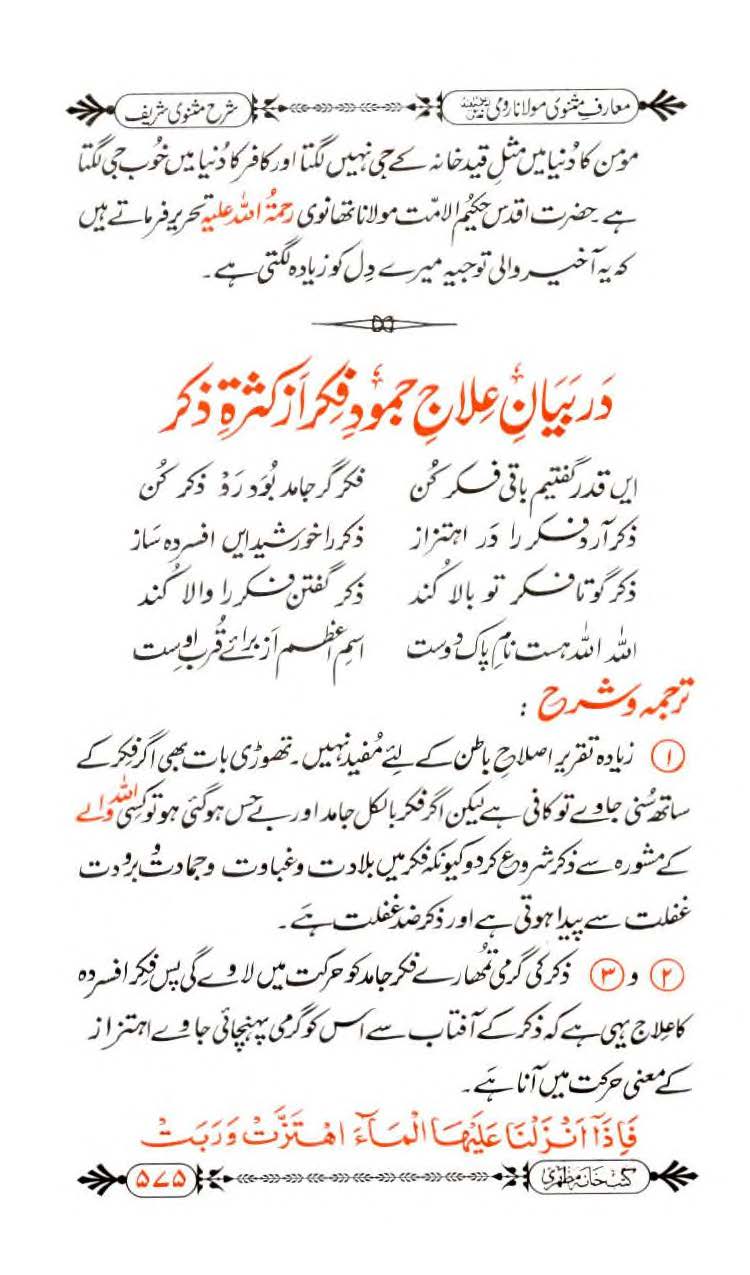 معارفِ مثنوی مولانا رومی رحمۃ اللہ علیہ
شرح مثنوی شریف
مؤمن کا دُنیا میں مثلِ قید خانہ کے جی نہیں لگتا اور کافر کا دُنیا میں خُوب جی لگتا
ہے۔ حضرت اقدس حکیمُ الامّت مولانا تھانوی رحمۃُ اللہ علیہ تحریر فرماتے ہیں
کہ یہ آخیر والی توجیہ میرے دِل کو زیادہ لگتی ہے۔
دَر بَیَانِ عِلاجِ جمُودِ فِکر اَز کثرۃِ ذکر
ایں قدر گفتیم باقی فکر کُن فکر گر جامد بُوَد رَوْ ذکر کُن
ذکر آرد فکر را دَر اہتزاز ذکر را خورشید ایں افسردہ سَاز
ذکر گو تا فکر تو بالا کُند ذکر گفتن فکر را والا کُند
اللہ اللہ ہست نامِ پاک دوست اسمِ اعظم اَز برائے قُربِ اوست
ترجمہ و شرح :
۱ زیادہ تقریر اصلاحِ باطن کے لئے مُفید نہیں۔ تھوڑی بات بھی اگر فِکر کے
ساتھ سُنی جاوے تو کافی ہے لیکن اگر فکر بالکل جامد اور بے حِس ہو گئی ہو تو کسِی اللہ والے
کے مشورہ سے ذکر شروع کر دو کیونکہ فکر میں بلادت و غباوت و جمادت و برودت
غفلت سے پیدا ہوتی ہے اور ذکر ضدِ غفلت ہے۔
۲ و ۳ ذکر کی گرمی تمُھارے فکر جامد کو حرکت میں لاوے گی پس فِکر افسردہ
کا علاج یہی ہے کہ ذکر کے آفتاب سے اس کو گرمی پہنچائی جاوے اہتزاز
کے معنی حرکت میں آنا ہے۔
فَاِذَاۤ اَنْزَلْنَا عَلَیْهَا الْمَآءَ اهْتَزَّتْ وَرَبَتْ
کتب خانہ مظہری
۵۷۵